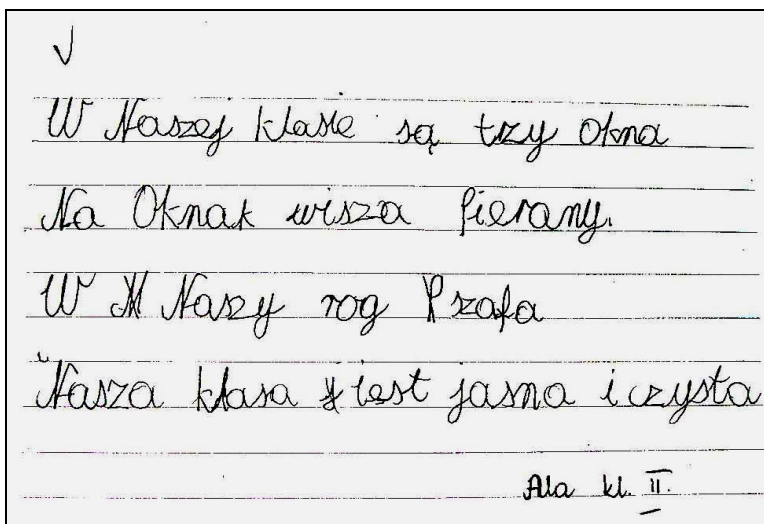 W Naszej klasie są trzy okna
Na Oknak wisza fierany.
W Naszy rog szafa
Nasza klasa iest jasna i czysta
Ala kl. II.